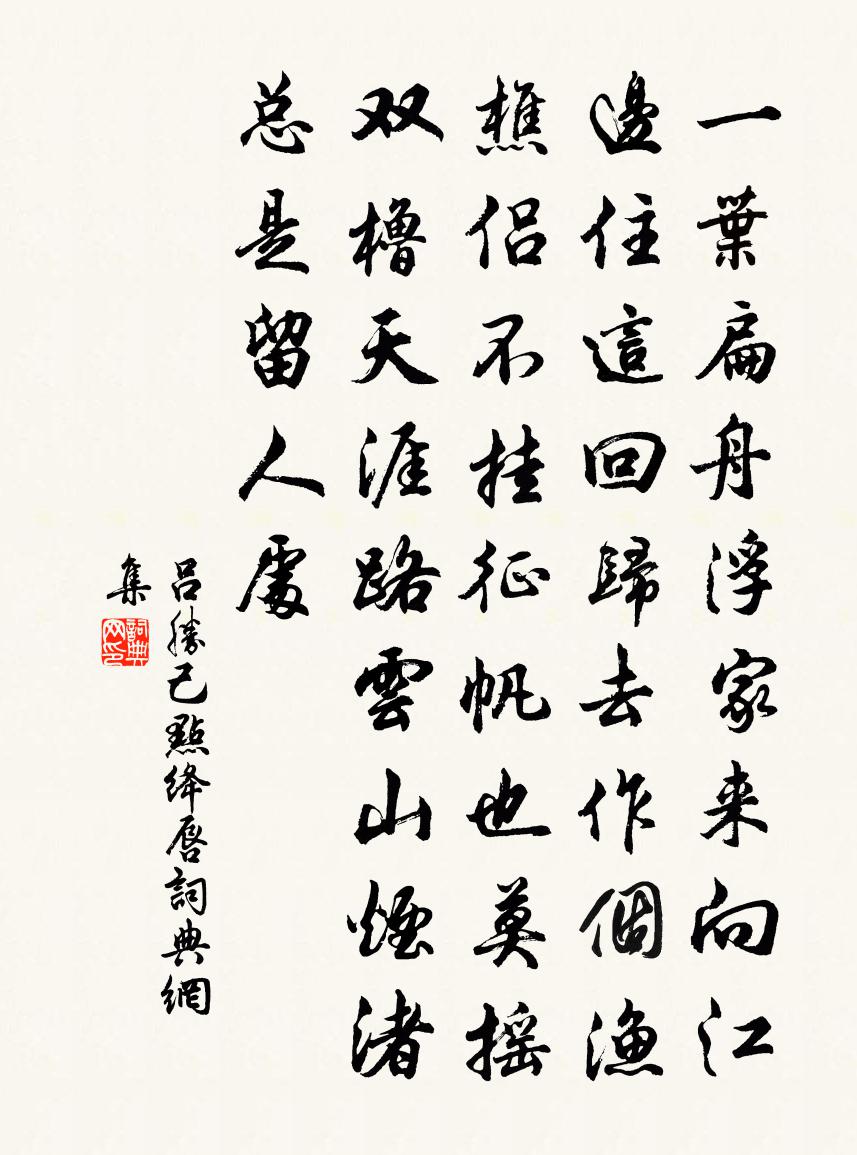 一葉扁舟浮家来向江
邊住這回歸去作個漁
樵侣不挂征帆也莫摇
双櫓天涯路雲山煙渚
总是留人處
吕勝己點绛唇詞典網
集
詞典
网印